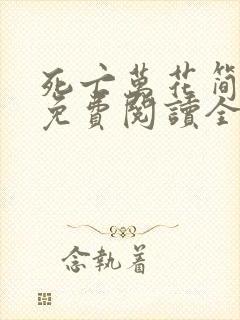 死亡萬花筒
免費閱讀全
念執着